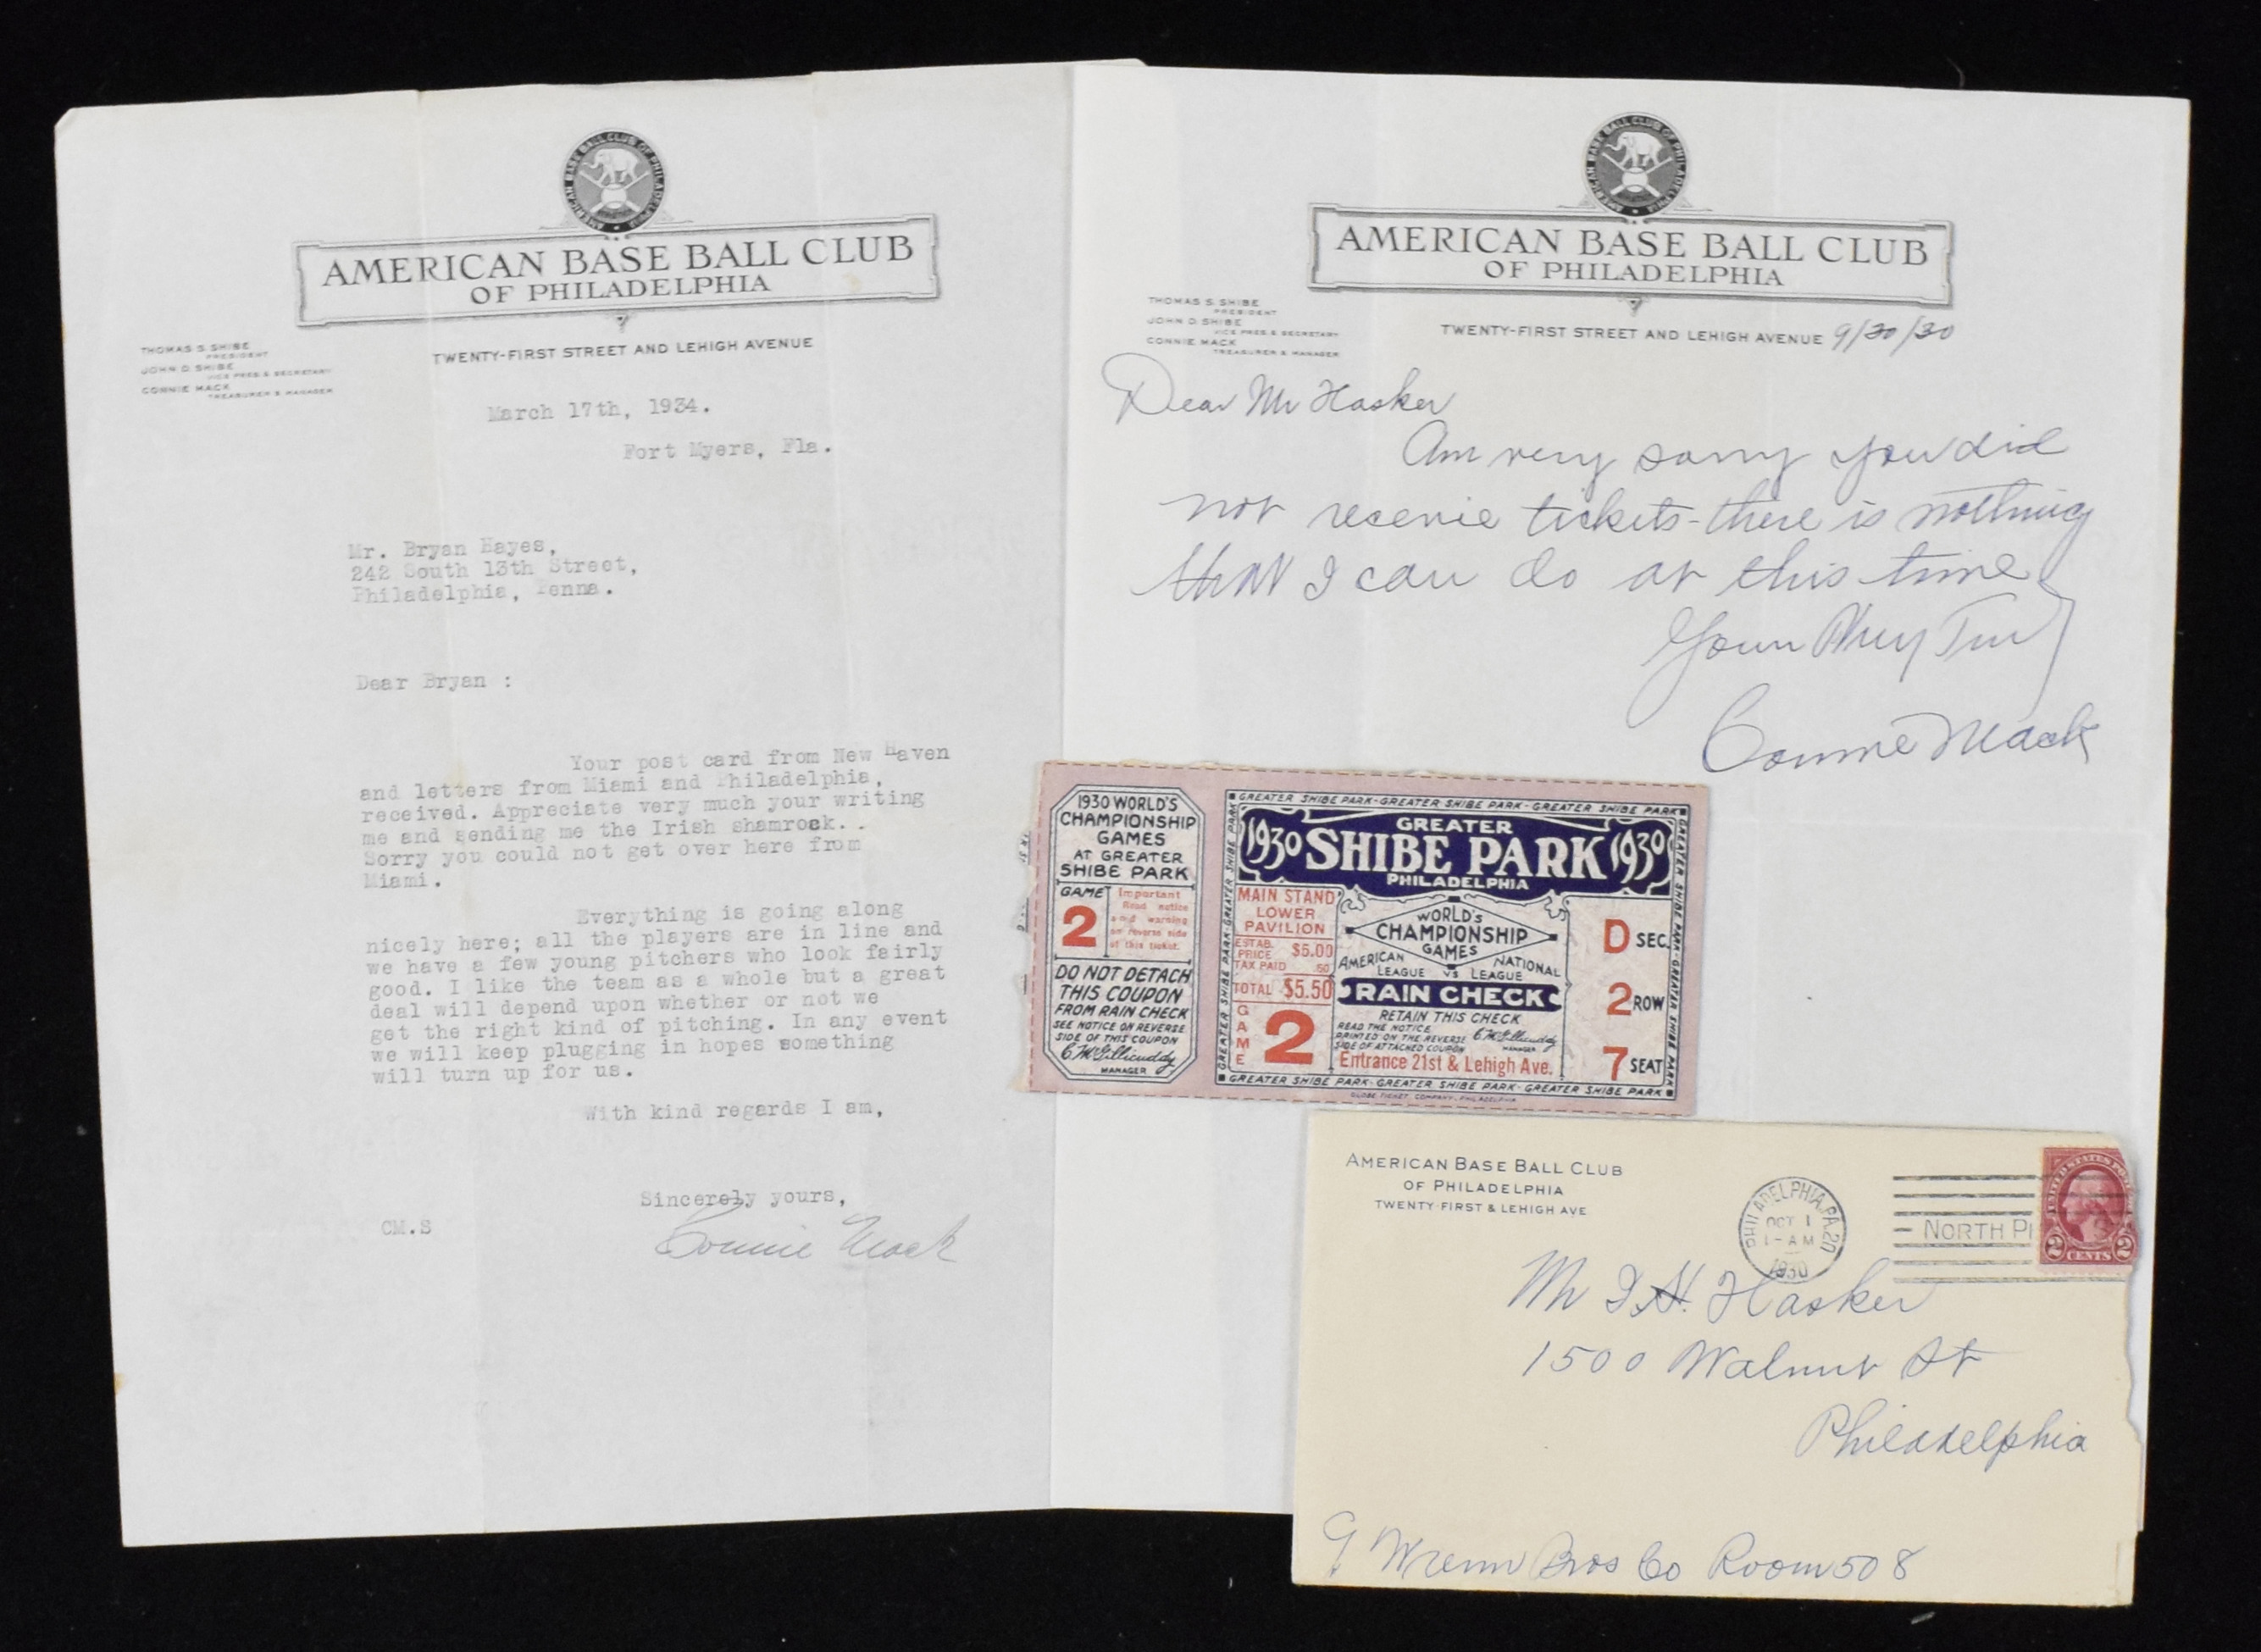 AMERICAN BASE BALL CLUB OF PHILADELPHIA
AMERICAN BASE BALL CLUB
OF PHILADELPHIA
THOMAS S. SHIBE
PRESIDENT
JOHN D. SHIBE
VICE PRES. & SECRETARY
CONNIE MACK
TREASURER & MANAGER
TWENTY-FIRST STREET AND LEHIGH AVENUE
March 17th, 1934.
Fort Myers, Fla.
Mr. Bryan Hayes,
242 South 13th Street,
Philadelphia, Penna.
Dear Bryan :
Your post card from New Haven
and letters from Miami and Philadelphia,
received. Appreciate very much your writing
me and sending me the Irish shamrock..
Sorry you could not get over here from
Miami.
Everything is going along
nicely here; all the players are in line and
we have a few young pitchers who look fairly
good. I like the team as a whole but a great
deal will depend upon whether or not we
get the right kind of pitching. In any event
we will keep plugging in hopes something
will turn up for us.
With kind regards I am,
Sincerely yours,
CM.S
Connie Mack
AMERICAN BASE BALL CLUB OF PHILADELPHIA
AMERICAN BASE BALL CLUB
OF PHILADELPHIA
THOMAS S. SHIBE
PRESIDENT
JOHN D. SHIBE
VICE PRES. & SECRETARY
CONNIE MACK
TREASURER & MANAGER
TWENTY-FIRST STREET AND LEHIGH AVENUE 9/30/30
Dear Mr Hasker
Am very sorry you did
not receive tickets - there is nothing
that I can do at this time
Yours Very Truly
Connie Mack
1930 WORLD'S
CHAMPIONSHIP
GAMES
AT GREATER
SHIBE PARK
GAME
2
Important
Read notice
and warning
on reverse side
of this ticket.
DO NOT DETACH
THIS COUPON
FROM RAIN CHECK
SEE NOTICE ON REVERSE
SIDE OF THIS COUPON
C. McGillicuddy
MANAGER
GREATER SHIBE PARK-GREATER SHIBE PARK-GREATER SHIBE PARK
GREATER SHIBE PARK-GREATER SHIBE PARK
GREATER
1930 SHIBE PARK 1930
PHILADELPHIA
MAIN STAND
LOWER
PAVILION
ESTAB. PRICE $5.00
TAX PAID .50
TOTAL $5.50
GAME
2
WORLD'S
CHAMPIONSHIP
GAMES
AMERICAN LEAGUE VS NATIONAL LEAGUE
RAIN CHECK
RETAIN THIS CHECK
READ THE NOTICE
PRINTED ON THE REVERSE
SIDE OF ATTACHED COUPON
C. McGillicuddy
MANAGER
Entrance 21st & Lehigh Ave.
D SEC.
2 ROW
7 SEAT
GREATER SHIBE PARK-GREATER SHIBE PARK
GREATER SHIBE PARK-GREATER SHIBE PARK-GREATER SHIBE PARK
GLOBE TICKET COMPANY, PHILADELPHIA
AMERICAN BASE BALL CLUB
OF PHILADELPHIA
TWENTY-FIRST & LEHIGH AVE
PHILADELPHIA, PA.
OCT 1
1-AM
1930
NORTH
UNITED STATES
2 CENTS 2
Mr I.H. Hasker
1500 Walnut St
Philadelphia
Wrenn Bros Co Room 508